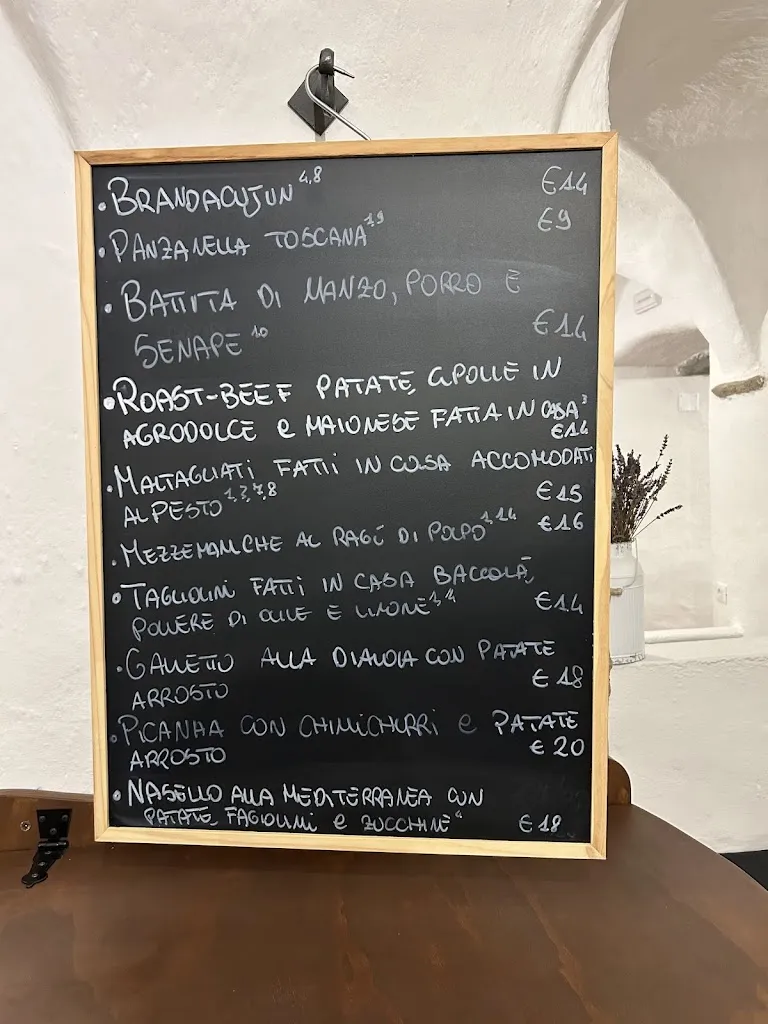 • BRANDACUJUN 4,8 €14
• PANZANELLA TOSCANA 1,9 €9
• BATTUTA DI MANZO, PORRO E
SENAPE 10 €14
• ROAST-BEEF PATATE, CIPOLLE IN
AGRODOLCE e MAIONESE FATTA IN CASA 3
€14
• MALTAGLIATI FATTI IN CASA ACCOMODATI
AL PESTO 1,3,7,8 €15
• MEZZEMANICHE AL RAGÚ DI POLPO 1,14 €16
• TAGLIOLINI FATTI IN CASA BACCALÀ,
POLVERE DI OLIVE E LIMONE 1,4 €14
• GALLETTO ALLA DIAVOLA CON PATATE
ARROSTO €18
• PICANHA CON CHIMICHURRI e PATATE
ARROSTO €20
• NASELLO ALLA MEDITERRANEA CON
PATATE, FAGIOLINI e ZUCCHINE 4 €18